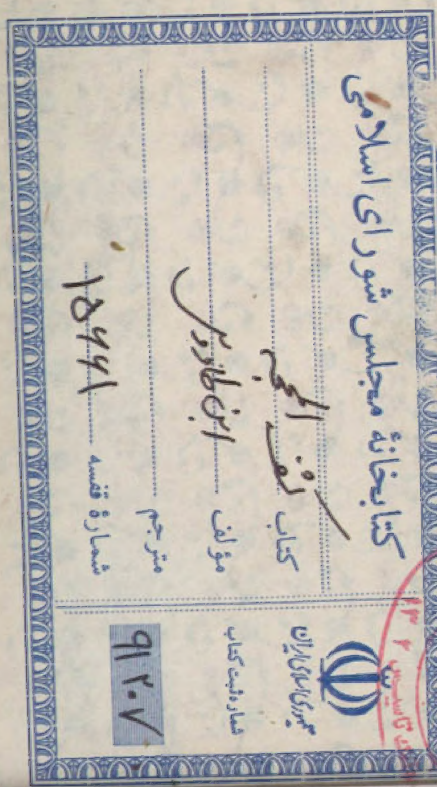 کتابخانهٔ مجلس شورای اسلامی
کتاب کشف المحجه
مؤلف ابن طاووس
مترجم
شمارهٔ قفسه ۱۵۶۶۱
جمهوری اسلامی ایران
شماره ثبت کتاب
۹۱۲۰۷
تأسیس ۱۳۰۲